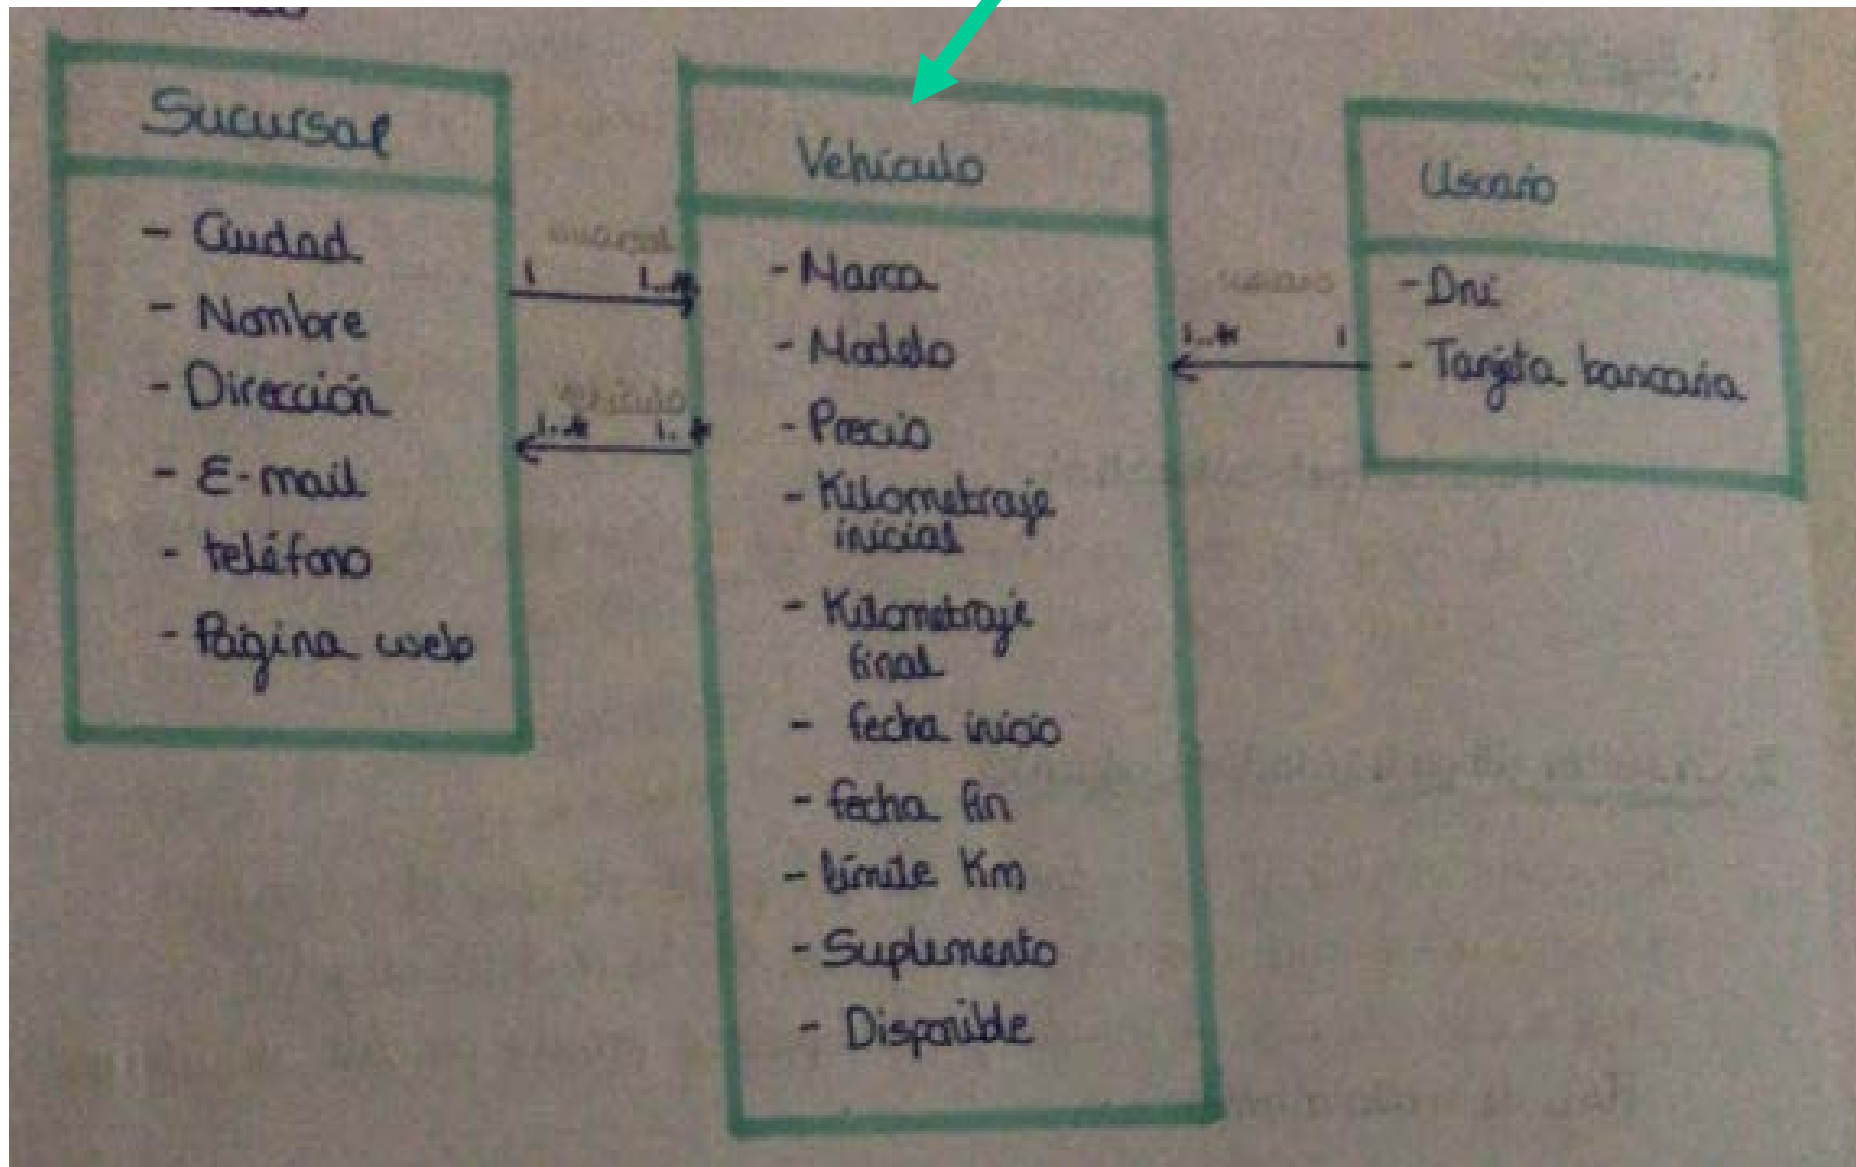 Sucursal
- Ciudad
- Nombre
- Dirección
- E-mail
- teléfono
- Página web
1 1..*
1..* 1..*
Vehículo
- Marca
- Modelo
- Precio
- Kilometraje
inicial
- Kilometraje
final
- fecha inicio
- fecha fin
- límite Km
- Suplemento
- Disponible
1..* 1
Usuario
- Dni
- Tarjeta bancaria